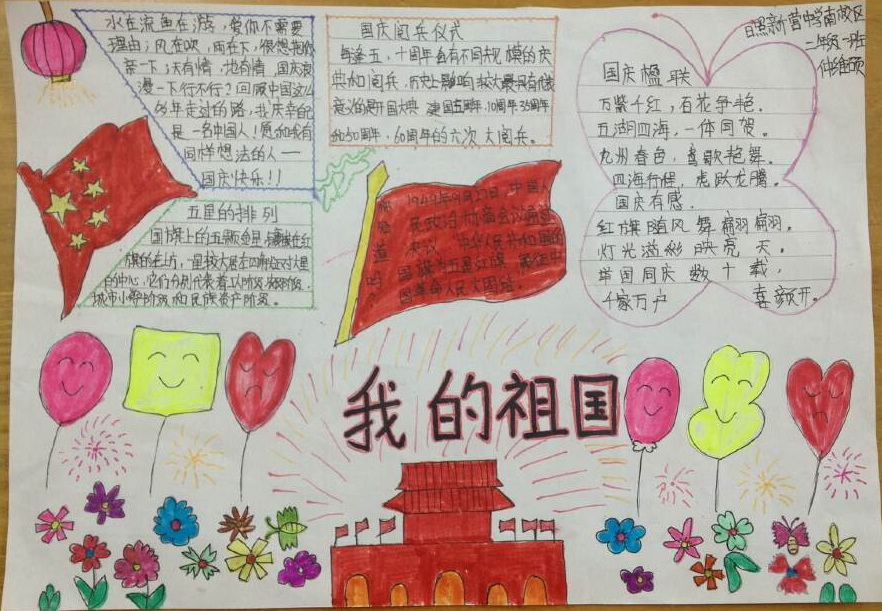 水在流鱼在游，爱你不需要
理由；风在吹，雨在下，很想把你
亲一下；天有情，地有情，国庆浪
漫一下行不行？回顾中国这么
65年走过的路，我庆幸自己
是一名中国人！愿和我有
同样想法的人——
国庆快乐！！
五星的排列
国旗上的五颗金星，镶嵌在红
旗的左上方，一星较大居左四星环对大星
的中心，它们分别代表着工人阶级
城市小资产阶级和民族资产阶级。
国庆阅兵仪式
每逢五、十周年会有不同规模的庆
典如阅兵，历史上影响较大最具有代表
意义的是开国大典 建国五周年、10周年、35周年
和50周年，60周年的六次大阅兵。
你知道吗
1949年9月27日，中国人
民政治协商会议通过
决议 中华人民共和国的
国旗为五星红旗 象征中
国革命人民大团结。
日照新营中学南校区
二年级一班
国庆楹联
万紫千红，百花争艳。
五湖四海，一体同贺。
九州春色，莺歌艳舞。
四海行程，虎跃龙腾。
国庆有感。
红旗随风舞翩翩。
灯光溢彩映亮天。
举国同庆数十载，
千家万户喜颜开。
我的祖国